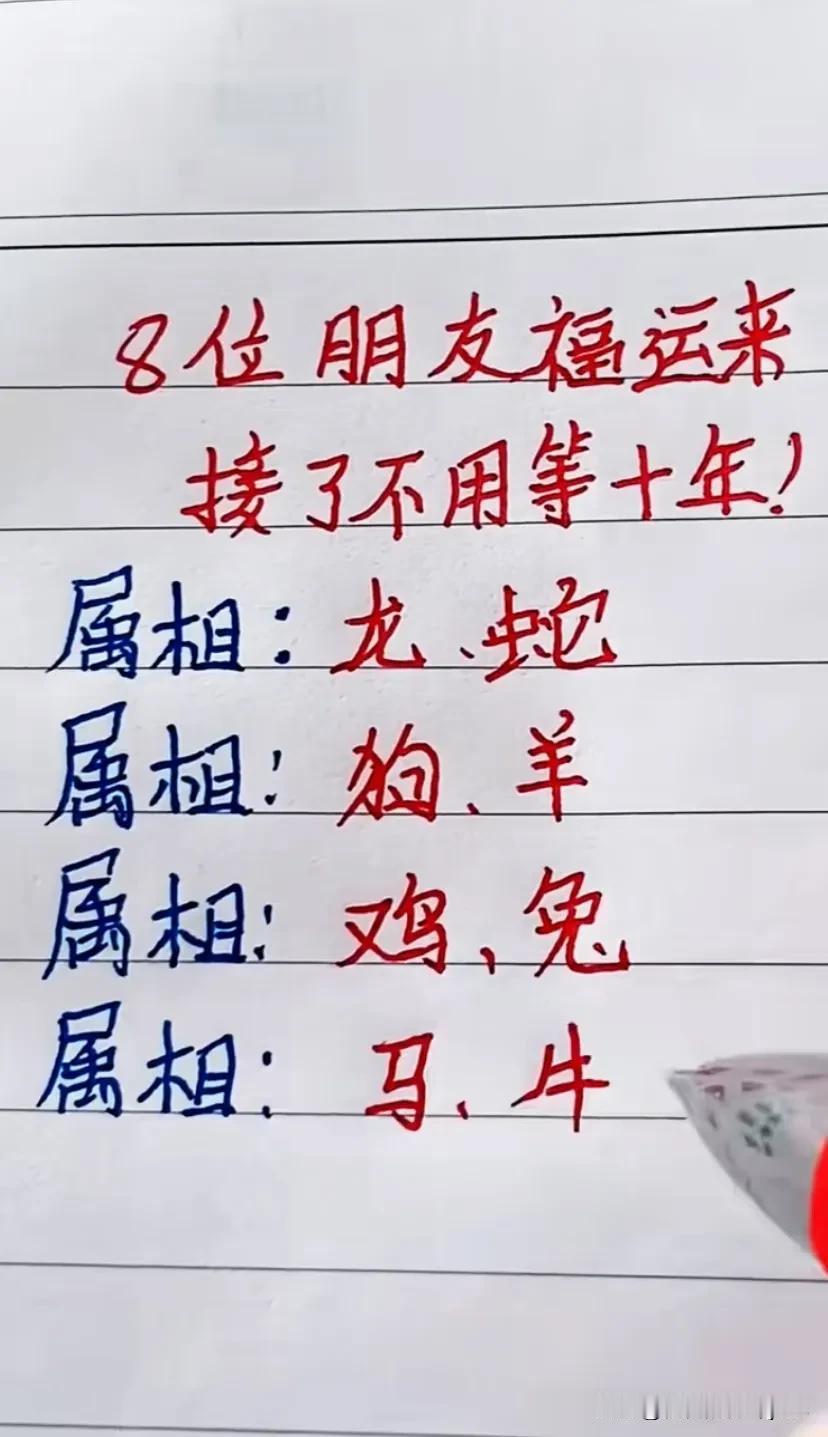 8位朋友福运来
接了不用等十年!
属相:龙、蛇
属相:狗、羊
属相:鸡、兔
属相:马、牛